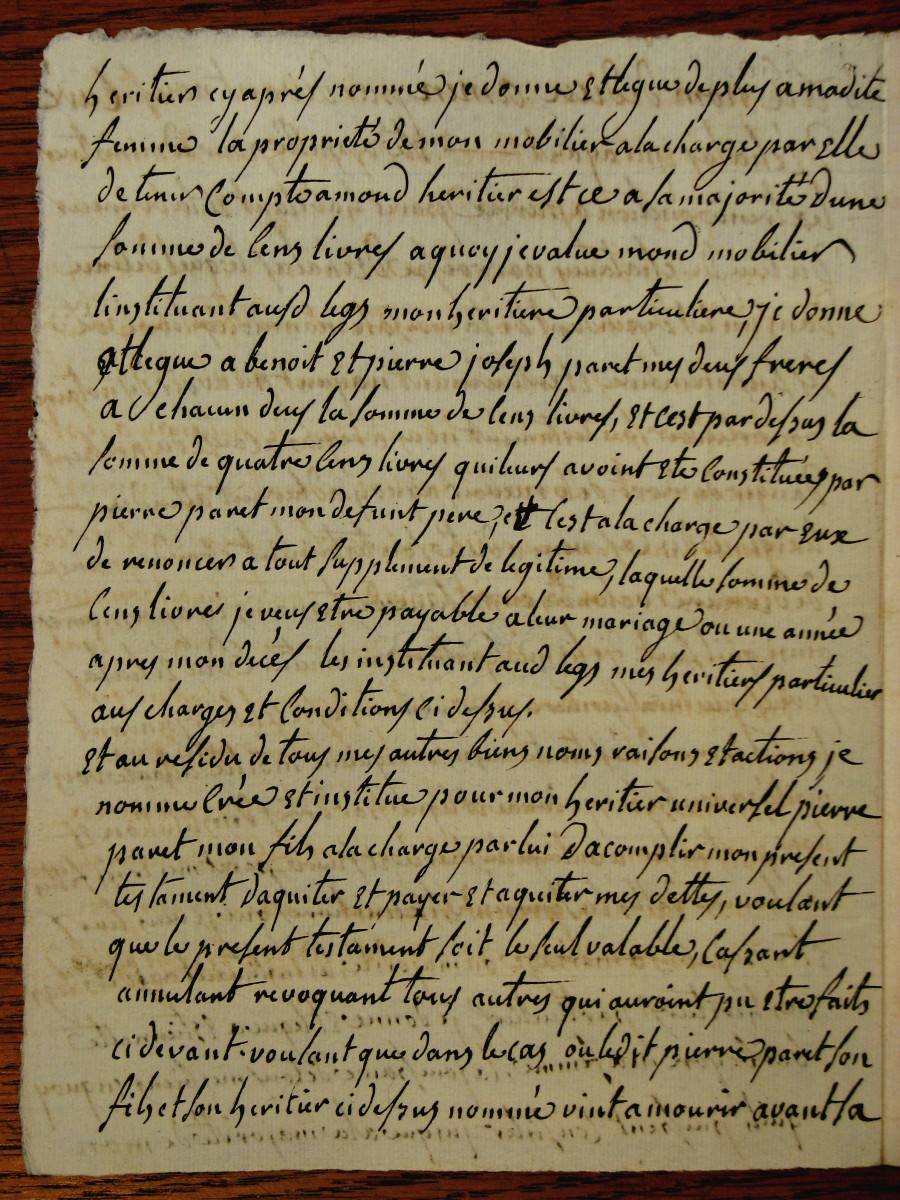 heritier cyaprés nommée je donne et legue deplus amadite
femme la proprieté de mon mobilier ala charge par elle
de tenir Compte amond heritier est ce a sa majorité dune
somme de Cens livres aquoy jevalue mond mobilier
linstituant ausd legs mon heritiere particuliere, je donne
et legue a benoit et pierre joseph paret mes deus freres
a chacun deus la somme de Cens livres, et cest par dessus la
somme de quatre Cens livres quileurs avoint ete Constituées par
pierre paret mon defunt pere, et Cest ala charge par eux
de renoncer a tout supplement de legitime, laquelle somme de
Cens livres je veus etre payable aleur mariage ou une année
apres mon décés les instituant aud legs mes heritiers particulier
aus charges et Conditions ci dessus.
et au residu de tous mes autres biens noms raisons et actions je
nomme Crée et institue pour mon heritier universel pierre
paret mon fils ala charge par lui dacomplir mon present
testament daquiter et payer et aquiter mes dettes, voulant
que le present testament soit le seul valable, Cassant
annulant revoquant tous autres qui auroint pu etre faits
ci devant. voulant que dans le cas ou ledit pierre paret son
fils et son heritier ci dessus nommé vint amourir avant sa